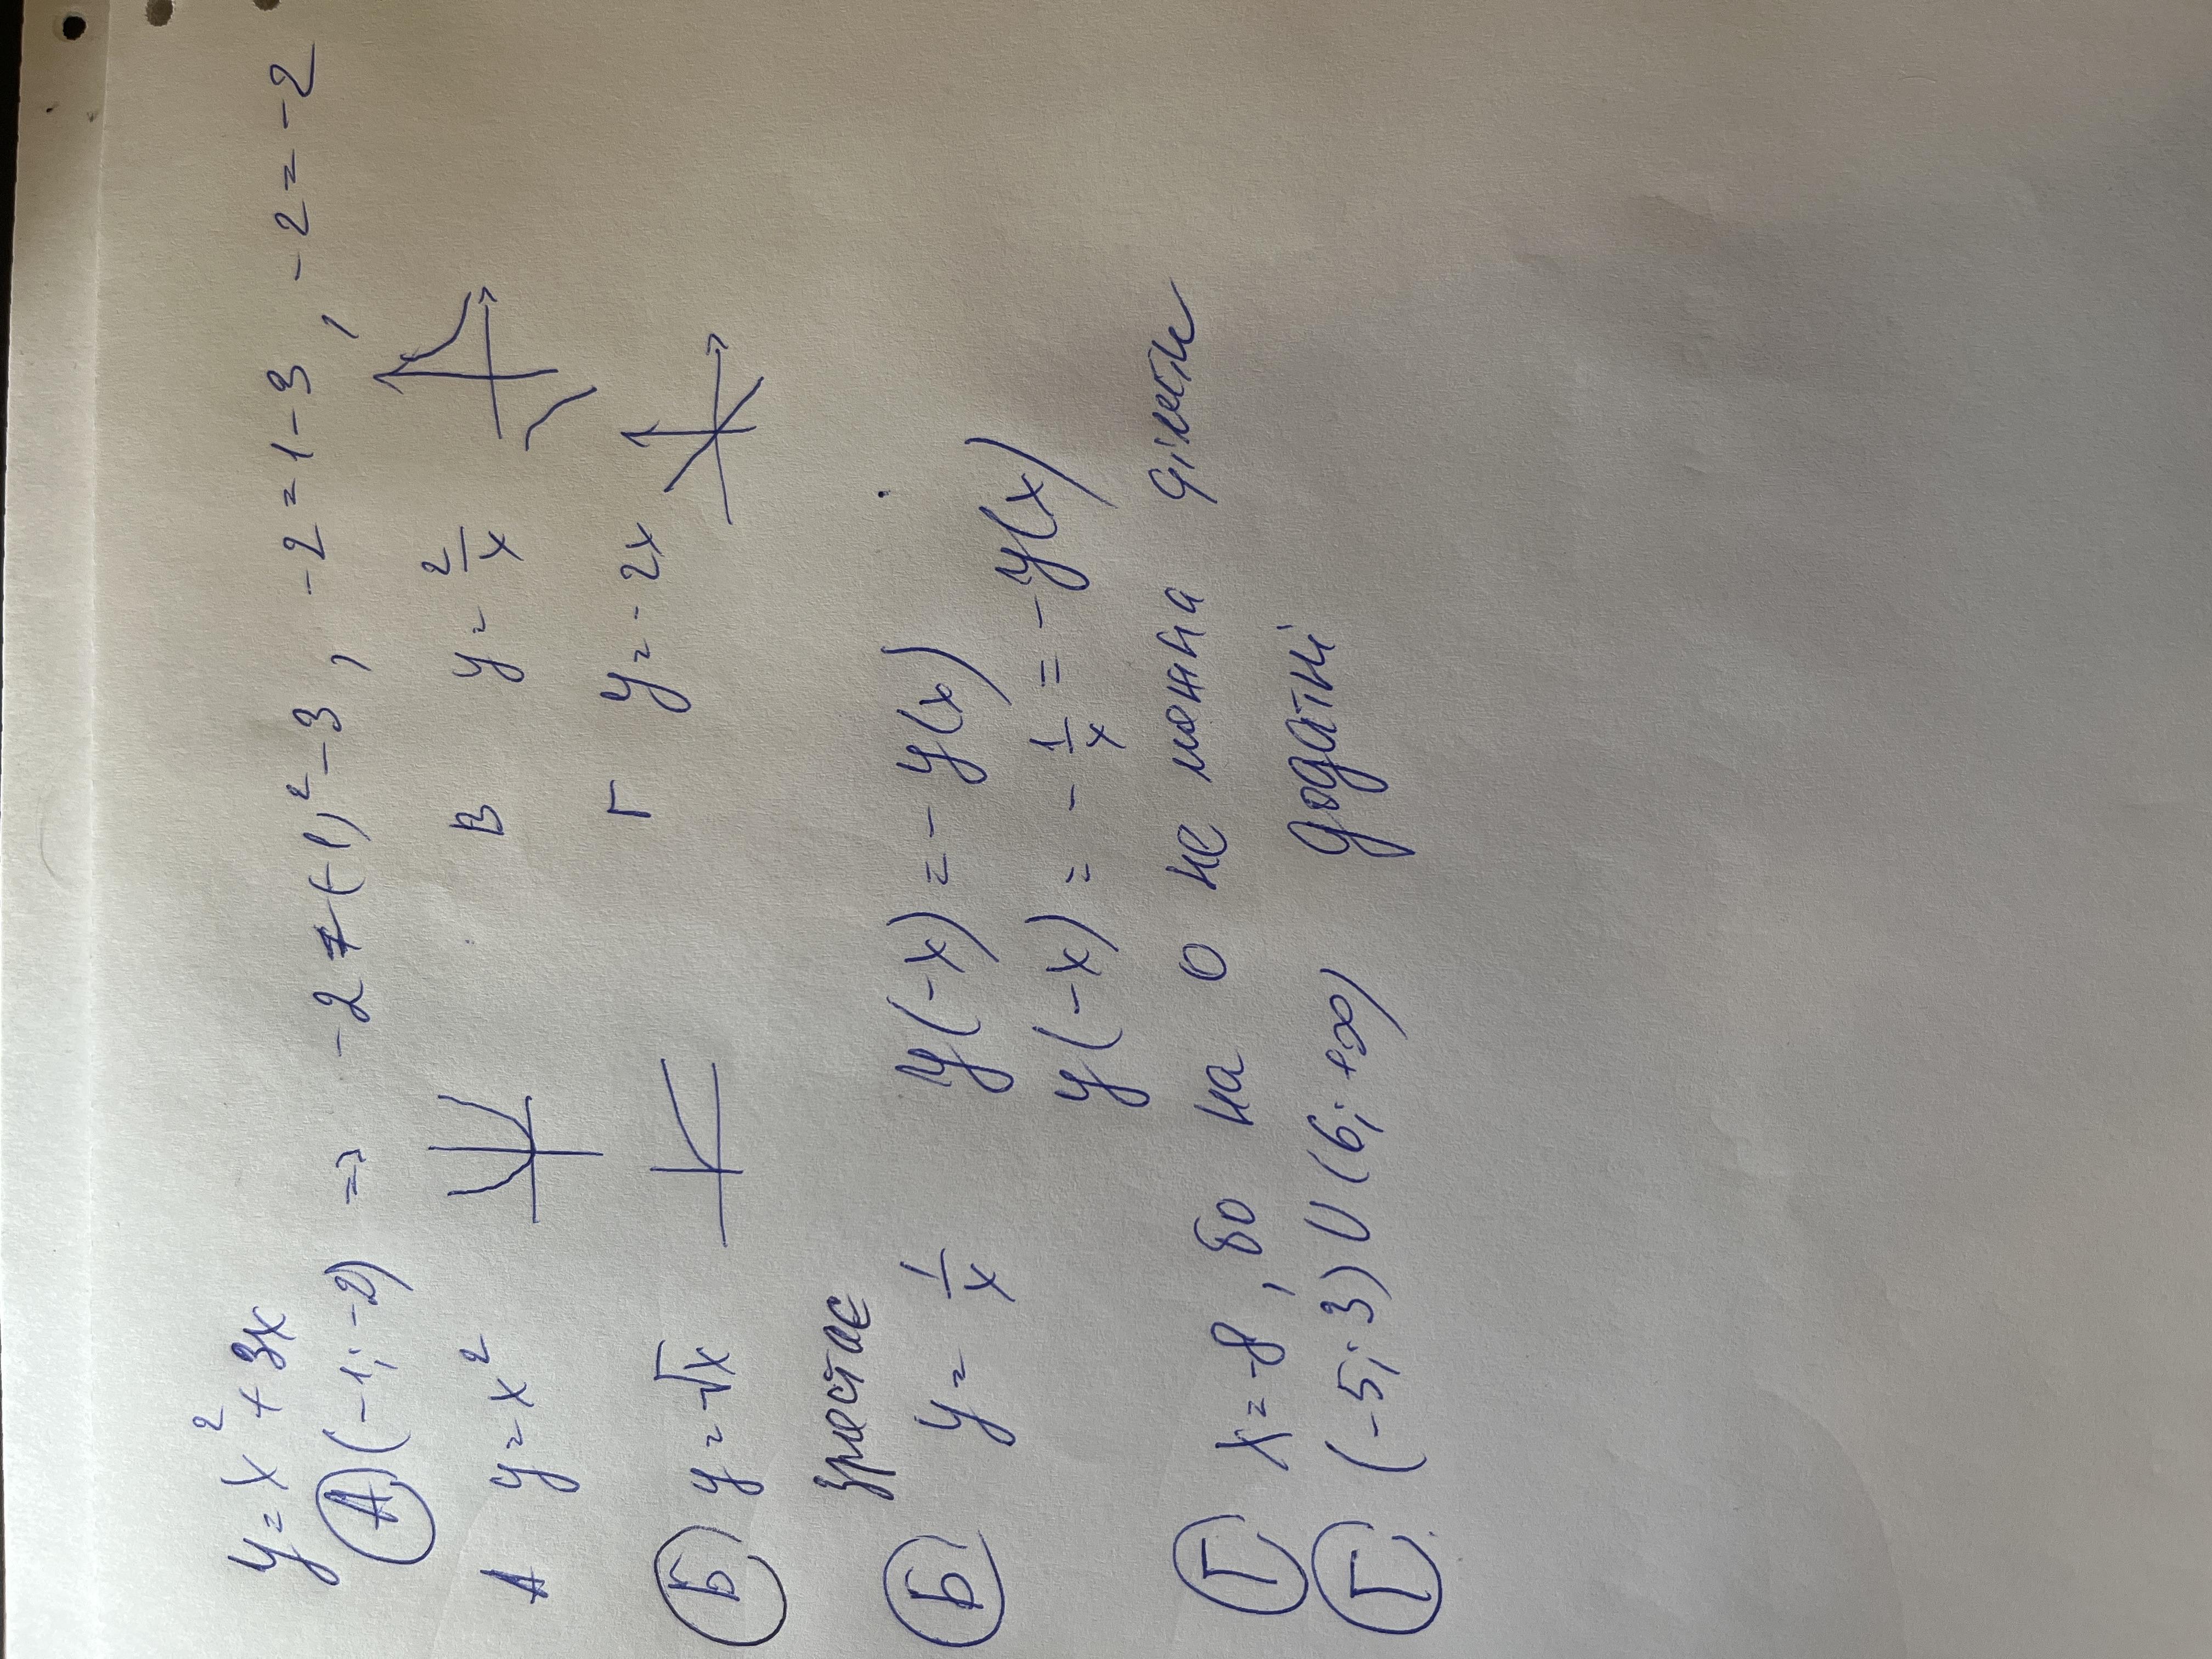 y = x² + 3x
А (-1; -2) => -2 = (-1)² - 3, -2 = 1 - 3, -2 = -2
А y = x² В y = 2/x
Б y = √x Г y = -2x
зростає
Б y = 1/x y(-x) = - y(x)
y(-x) = - 1/x = - y(x)
Г x = -8, бо на 0 не можна ділити
Г (-5; 3) U (6; +∞) додатні